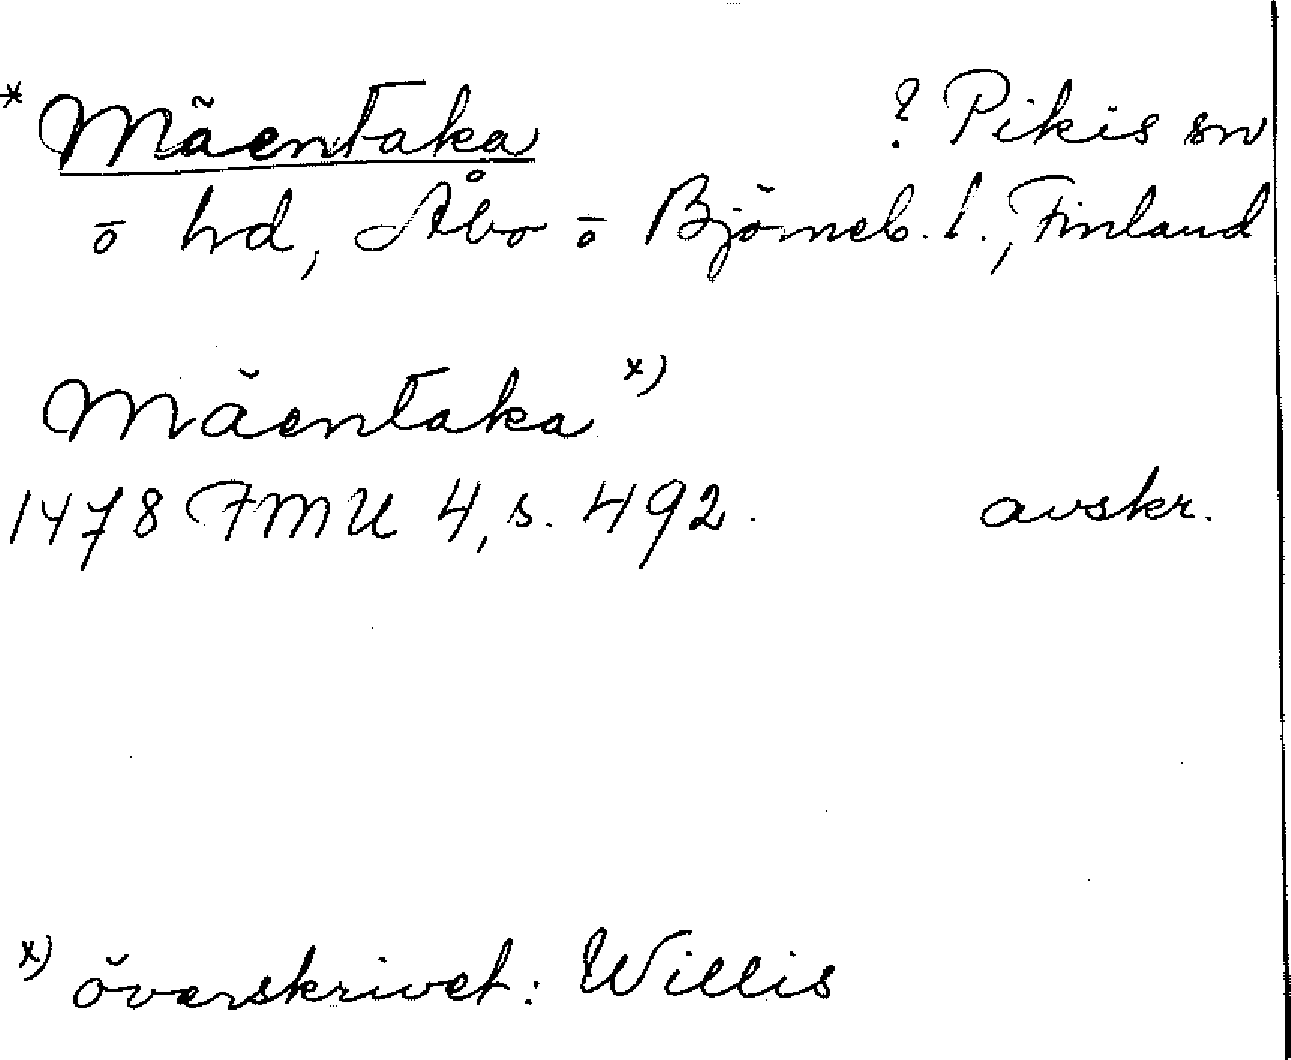 * Mäentaka ? Pikis sn
o hd, Åbo o Björneb. l., Finland
Mäentaka x)
1478 FMU 4, s. 492. avskr.
x) överskrivet: Willis